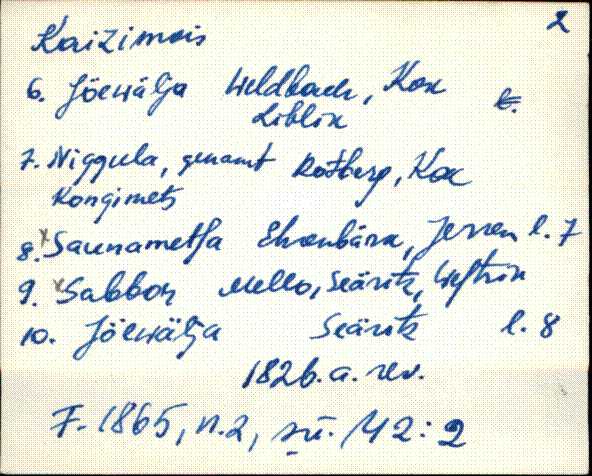 Kaizimois 2
6. Jöewälja Weldbach, Kox
Liblix l.
7. Niggula, genamt Rotberg, Kox
Kongimets
8. x Saunametsa Ehrenbärx, Jersen l. 7
9. x Sabbor Mello, Seäritz,
10. Jöewälja Seäritz l. 8
1826. a. rev.
F. 1865, n. 2, sü. 142:2